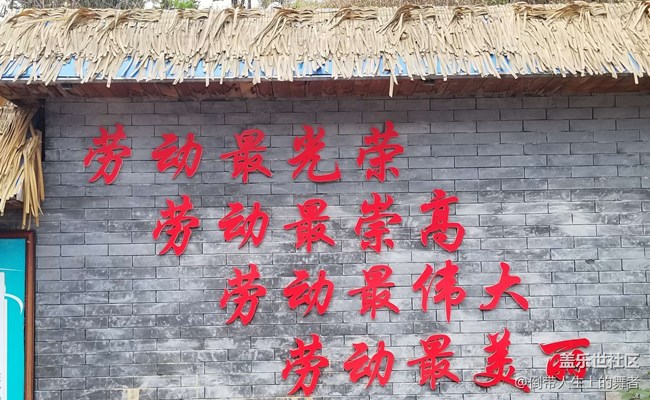 劳动最光荣
劳动最崇高
劳动最伟大
劳动最美丽
盖乐世社区
@倒带人生上的舞者